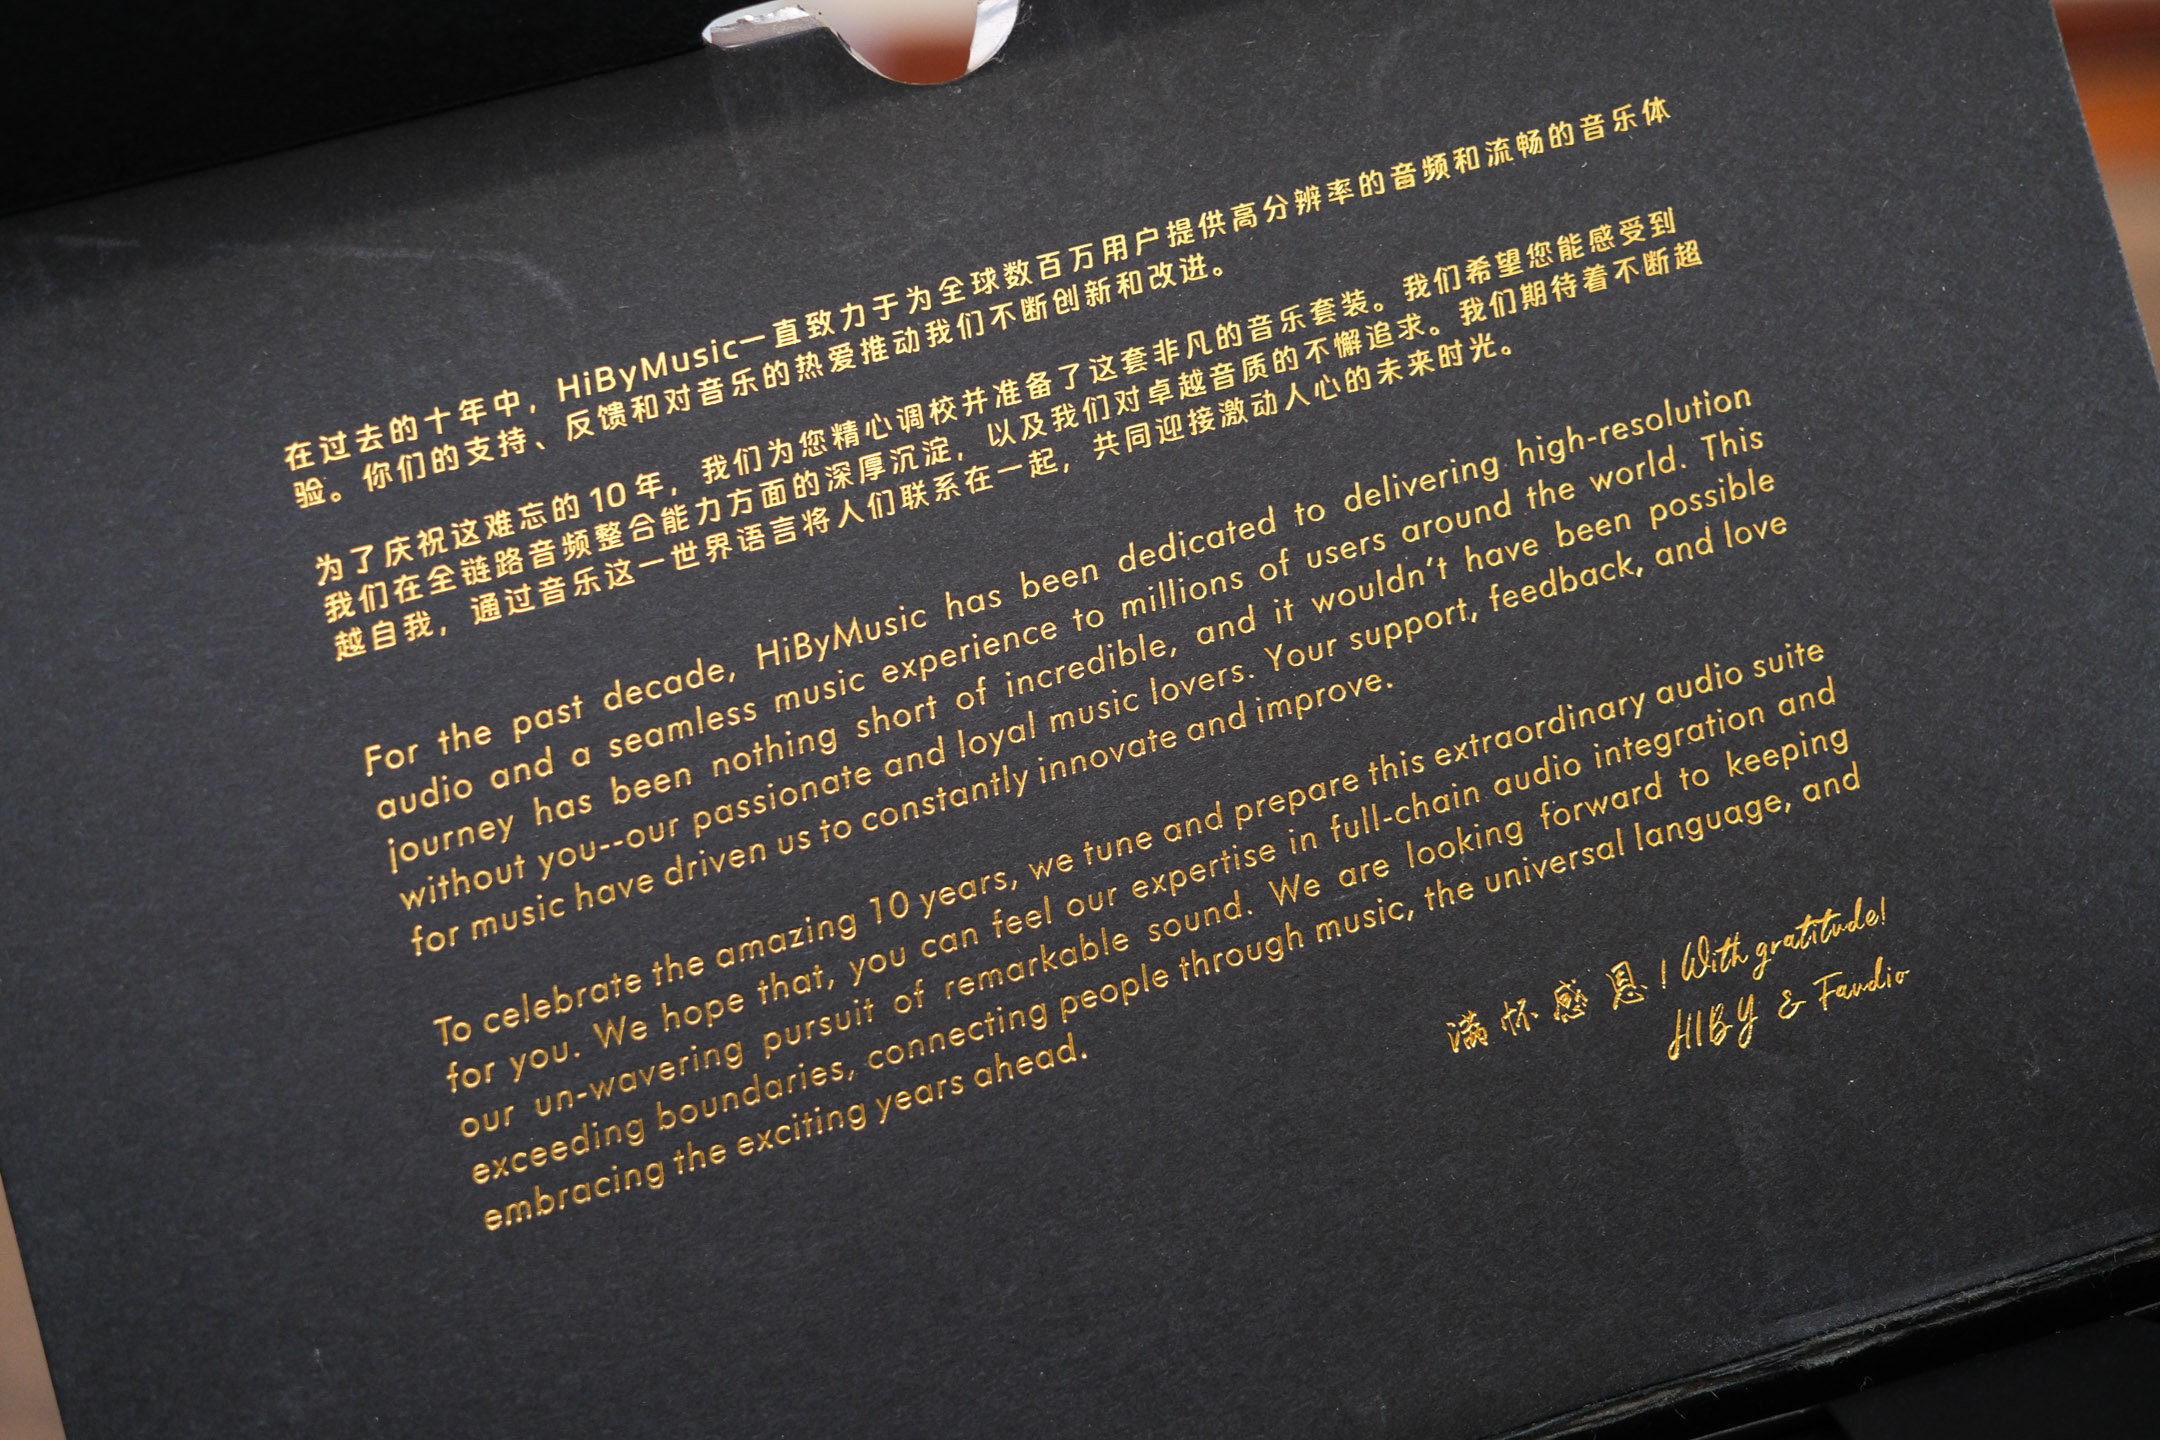 在过去的十年中，HiByMusic一直致力于为全球数百万用户提供高分辨率的音频和流畅的音乐体
验。你们的支持、反馈和对音乐的热爱推动我们不断创新和改进。
为了庆祝这难忘的10年，我们为您精心调校并准备了这套非凡的音乐套装。我们希望您能感受到
我们在全链路音频整合能力方面的深厚沉淀，以及我们对卓越音质的不懈追求。我们期待着不断超
越自我，通过音乐这一世界语言将人们联系在一起，共同迎接激动人心的未来时光。
For the past decade, HiByMusic has been dedicated to delivering high-resolution
audio and a seamless music experience to millions of users around the world. This
journey has been nothing short of incredible, and it wouldn't have been possible
without you--our passionate and loyal music lovers. Your support, feedback, and love
for music have driven us to constantly innovate and improve.
To celebrate the amazing 10 years, we tune and prepare this extraordinary audio suite
for you. We hope that, you can feel our expertise in full-chain audio integration and
our un-wavering pursuit of remarkable sound. We are looking forward to keeping
exceeding boundaries, connecting people through music, the universal language, and
embracing the exciting years ahead.
满怀感恩！With gratitude!
HIBY & Faudio